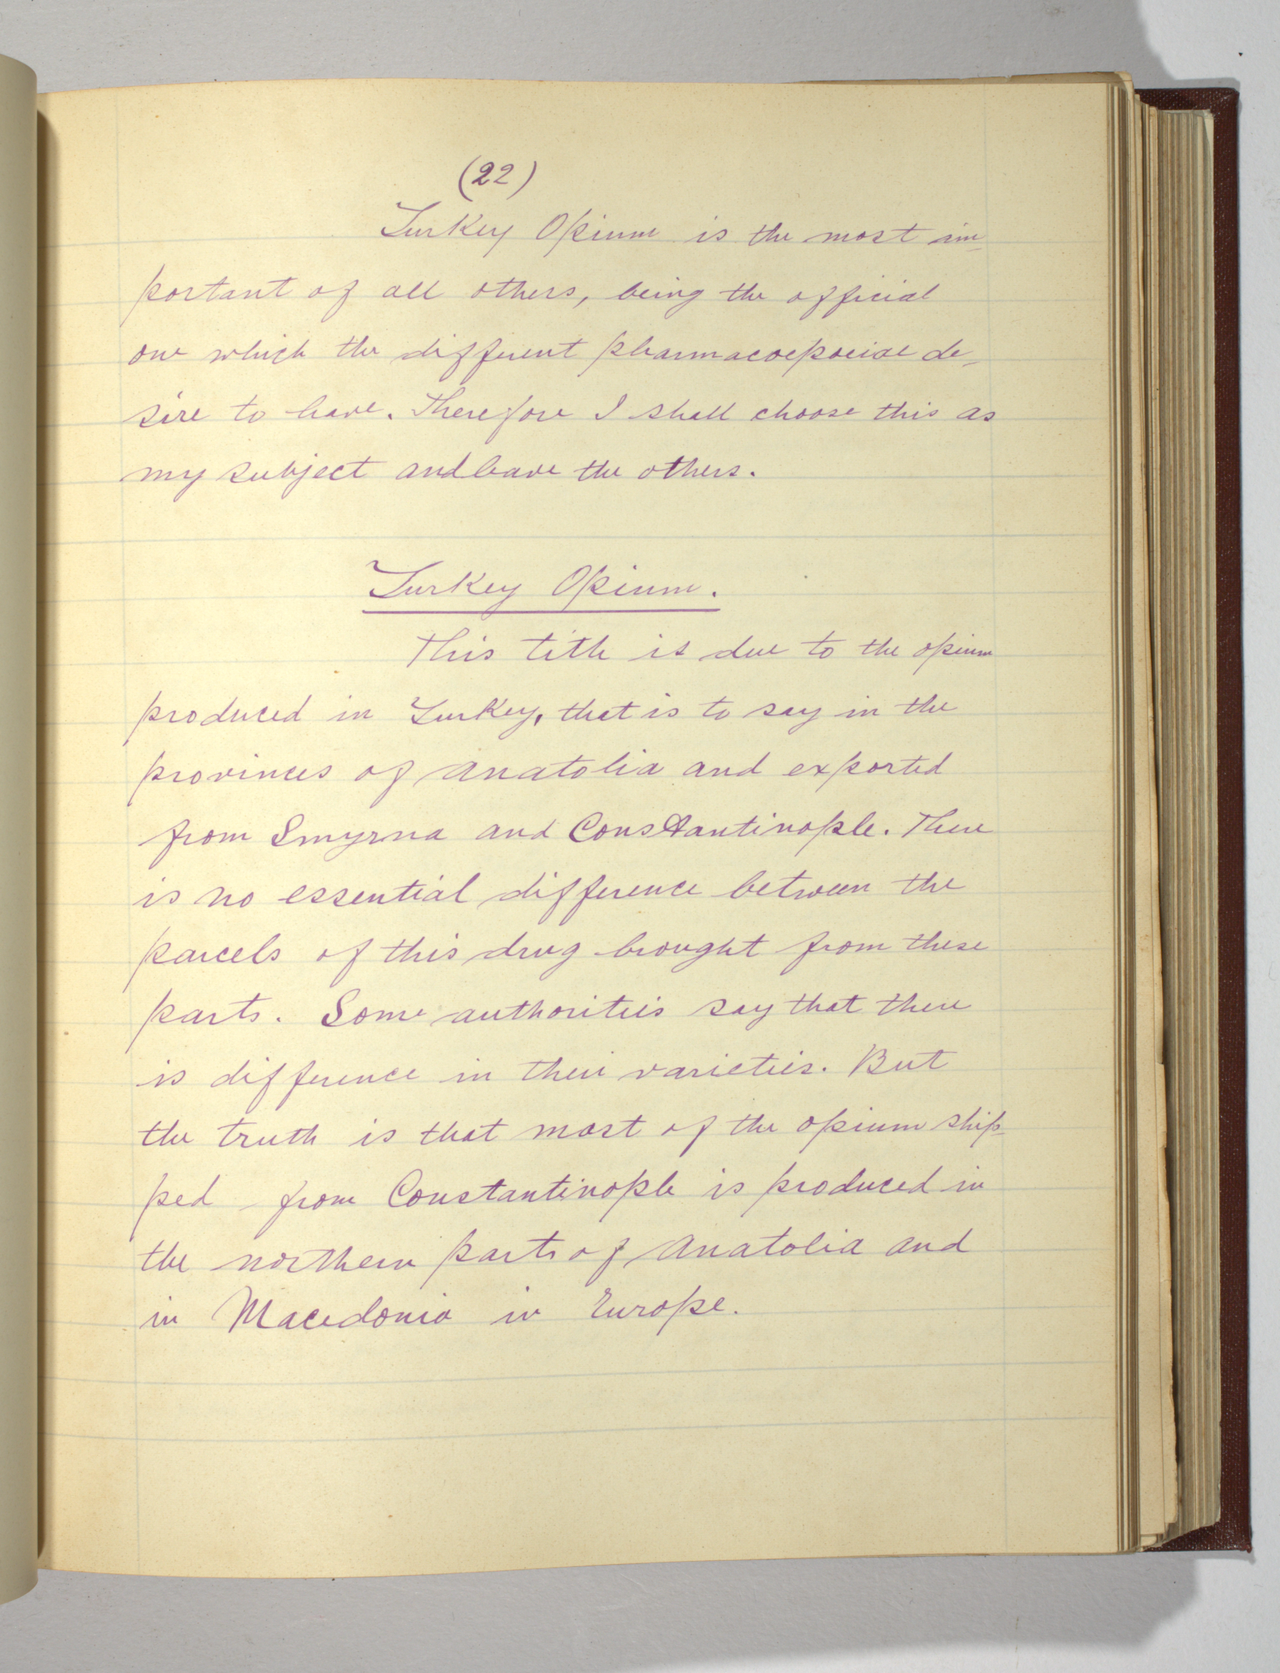 (22)
Turkey Opium is the most im-
portant of all others, being the official
one which the different pharmacoepoeiae de-
sire to have. Therefore I shall choose this as
my subject and leave the others.
Turkey Opium.
This title is due to the opium
produced in Turkey, that is to say in the
provinces of Anatolia and exported
from Smyrna and Constantinople. There
is no essential difference between the
parcels of this drug brought from these
parts. Some authorities say that there
is difference in their varieties. But
the truth is that most of the opium ship-
ped from Constantinople is produced in
the northern parts of Anatolia and
in Macedonia in Europe.